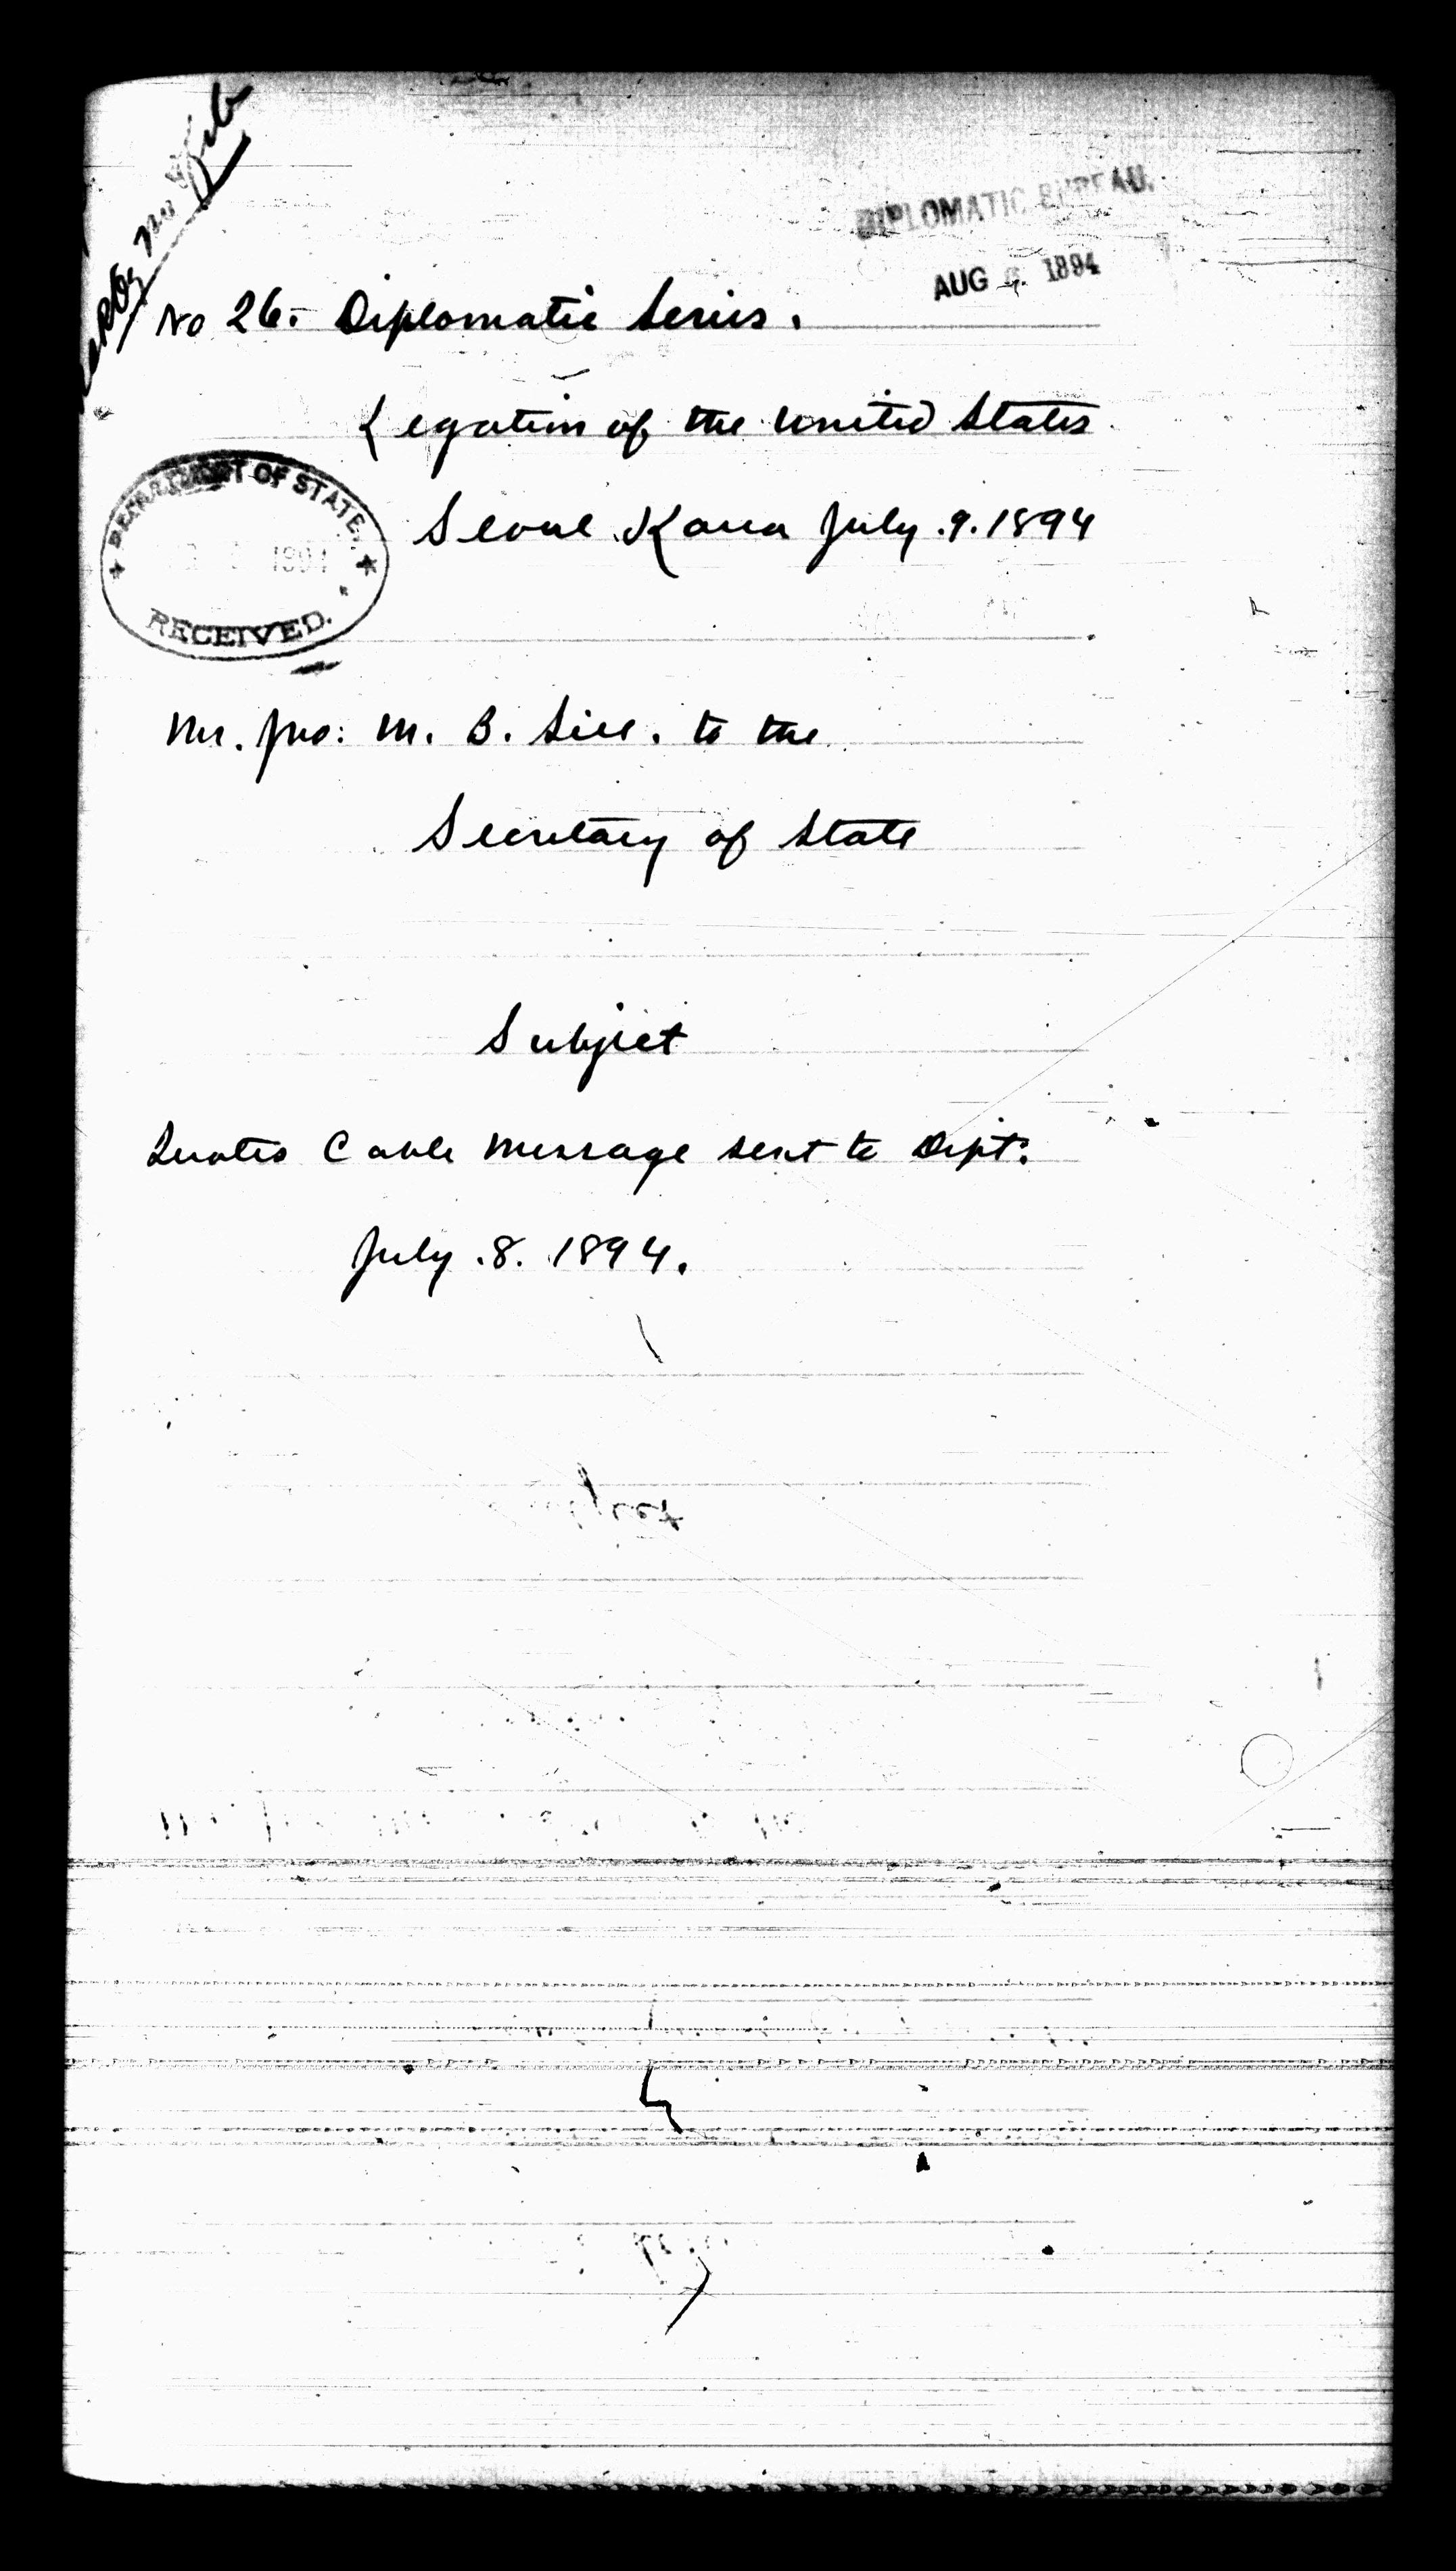 DIPLOMATIC BUREAU.
AUG 1894
No 26. Diplomatic Series.
Legation of the United States
Seoul Korea July .9. 1894
DEPARTMENT OF STATE.
RECEIVED.
Mr. Jno: M. B. Sill. to the
Secretary of State
Subject
Quotes Cable message sent to Dept:
July .8. 1894.